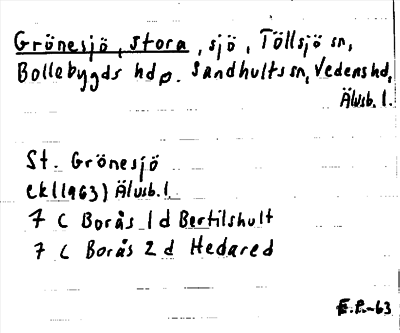 Grönesjö, stora, sjö, Töllsjö sn,
Bollebygds hd o. Sandhults sn, Vedens hd,
Älvsb. l.
St. Grönesjö
ek (1963) Älvsb. l
7 C Borås 1 d Bertilshult
7 C Borås 2 d Hedared
E.P.-63